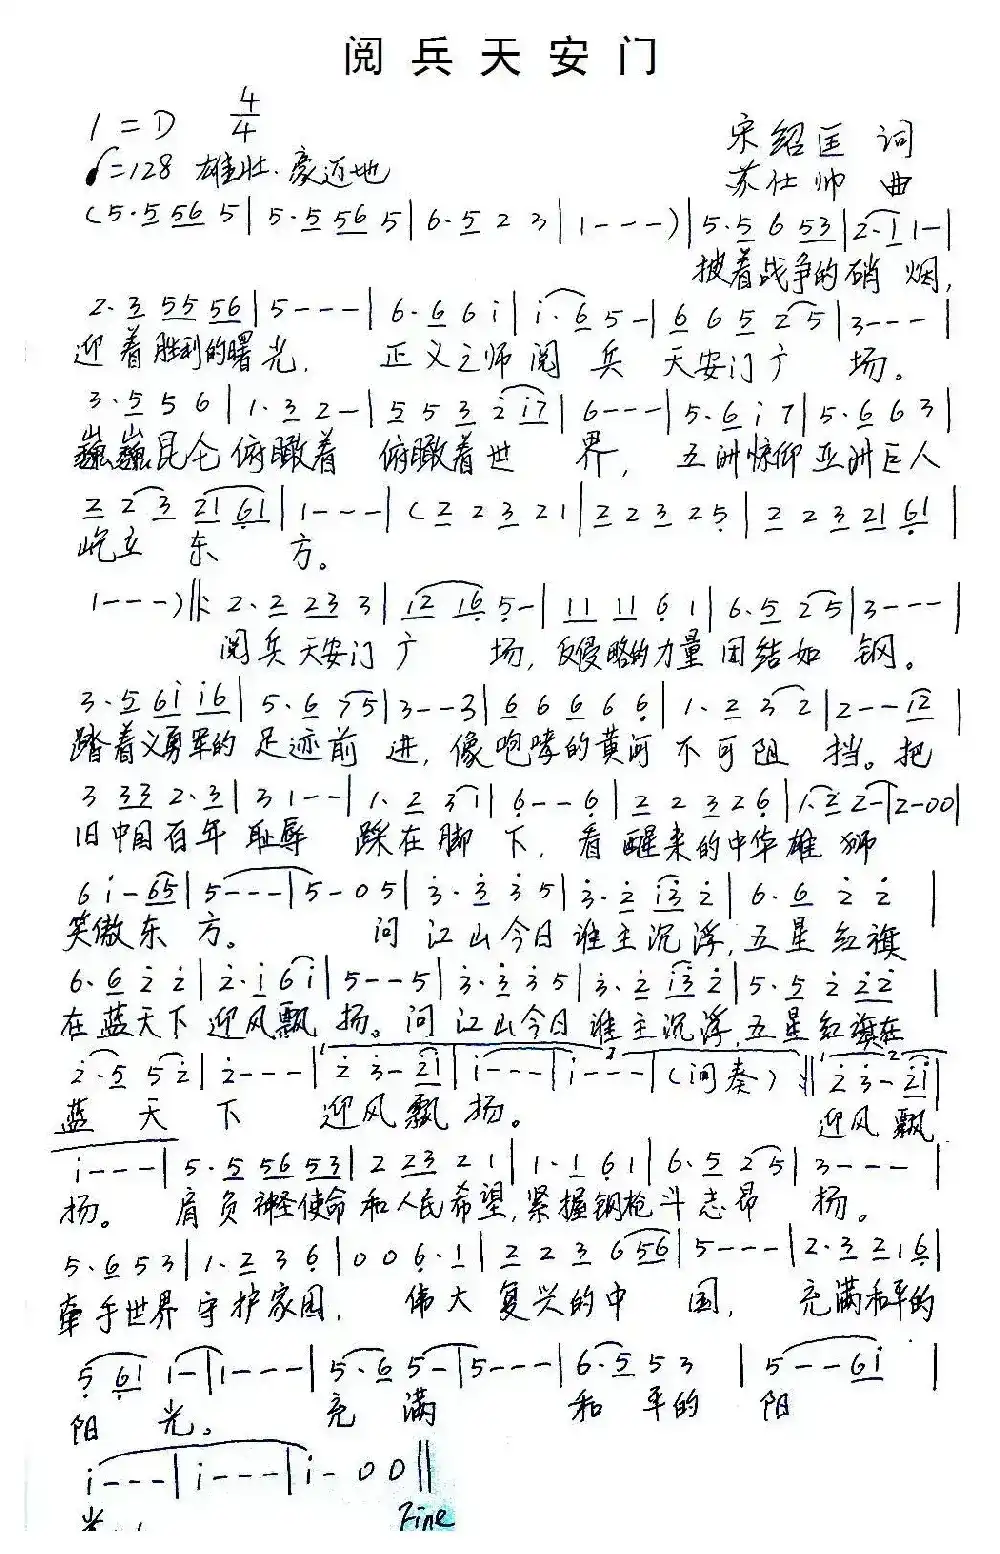 阅兵天安门
1=D 4/4
♩=128 雄壮.豪迈地
宋绍匡 词
苏仕帅 曲
(5·5 56 5 | 5·5 56 5 | 6·5 2 3 | 1---) | 5·5 6 53 | 2·1 1- |
披着战争的硝烟,
2·3 55 56 | 5--- | 6·6 6 i | i·6 5- | 6 6 5 2 5 | 3--- |
迎着胜利的曙光, 正义之师阅兵天安门广场。
3·5 5 6 | 1·3 2- | 5 5 3 2 i7 | 6--- | 5·6 i 7 | 5·6 6 3 |
巍巍昆仑俯瞰着 俯瞰着世界, 五洲惊仰亚洲巨人
2 2 3 21 61 | 1--- | (2 2 3 2 1 | 2 2 3 2 5 | 2 2 3 21 61 |
屹立东方。
1---) ‖: 2·2 23 3 | 12 16 5- | 11 11 6 1 | 6·5 2 5 | 3--- |
阅兵天安门广场, 反侵略的力量团结如钢。
3·5 6i i6 | 5·6 7 5 | 3--3 | 6 6 6 6 6 | 1·2 3 2 | 2--12 |
踏着义勇军的足迹前进, 像咆哮的黄河不可阻挡。把
3 33 2·3 | 3 1-- | 1·2 3 1 | 6--6 | 2 2 3 2 6 | 1·2 2- | 2-00 |
旧中国百年耻辱 踩在脚下, 看醒来的中华雄狮
6 i-65 | 5--- | 5-05 | 3·3 3 5 | 3·2 i3 2 | 6·6 2 2 |
笑傲东方。 问江山今日谁主沉浮, 五星红旗
6·6 2 2 | 2·i 6 i | 5--5 | 3·3 3 5 | 3·2 i3 2 | 5·5 2 22 |
在蓝天下迎风飘扬。问江山今日谁主沉浮, 五星红旗在
2·5 5 2 | 2--- | 2 3-2i | i--- | i--- | (间奏) :‖ 2 3-2i |
蓝天下 迎风飘扬。 迎风飘
i--- | 5·5 56 53 | 2 23 2 1 | 1·1 6 1 | 6·5 2 5 | 3--- |
扬。 肩负神圣使命和人民希望, 紧握钢枪斗志昂扬。
5·6 5 3 | 1·2 3 6 | 0 0 6·1 | 2 2 3 6 56 | 5--- | 2·3 2 1 6 |
牵手世界守护家园, 伟大复兴的中国, 充满和平的
5 61 1- | 1--- | 5·6 5- | 5--- | 6·5 5 3 | 5--6i |
阳光。 充满和平的阳
i--- | i--- | i-00 ‖
光
Fine